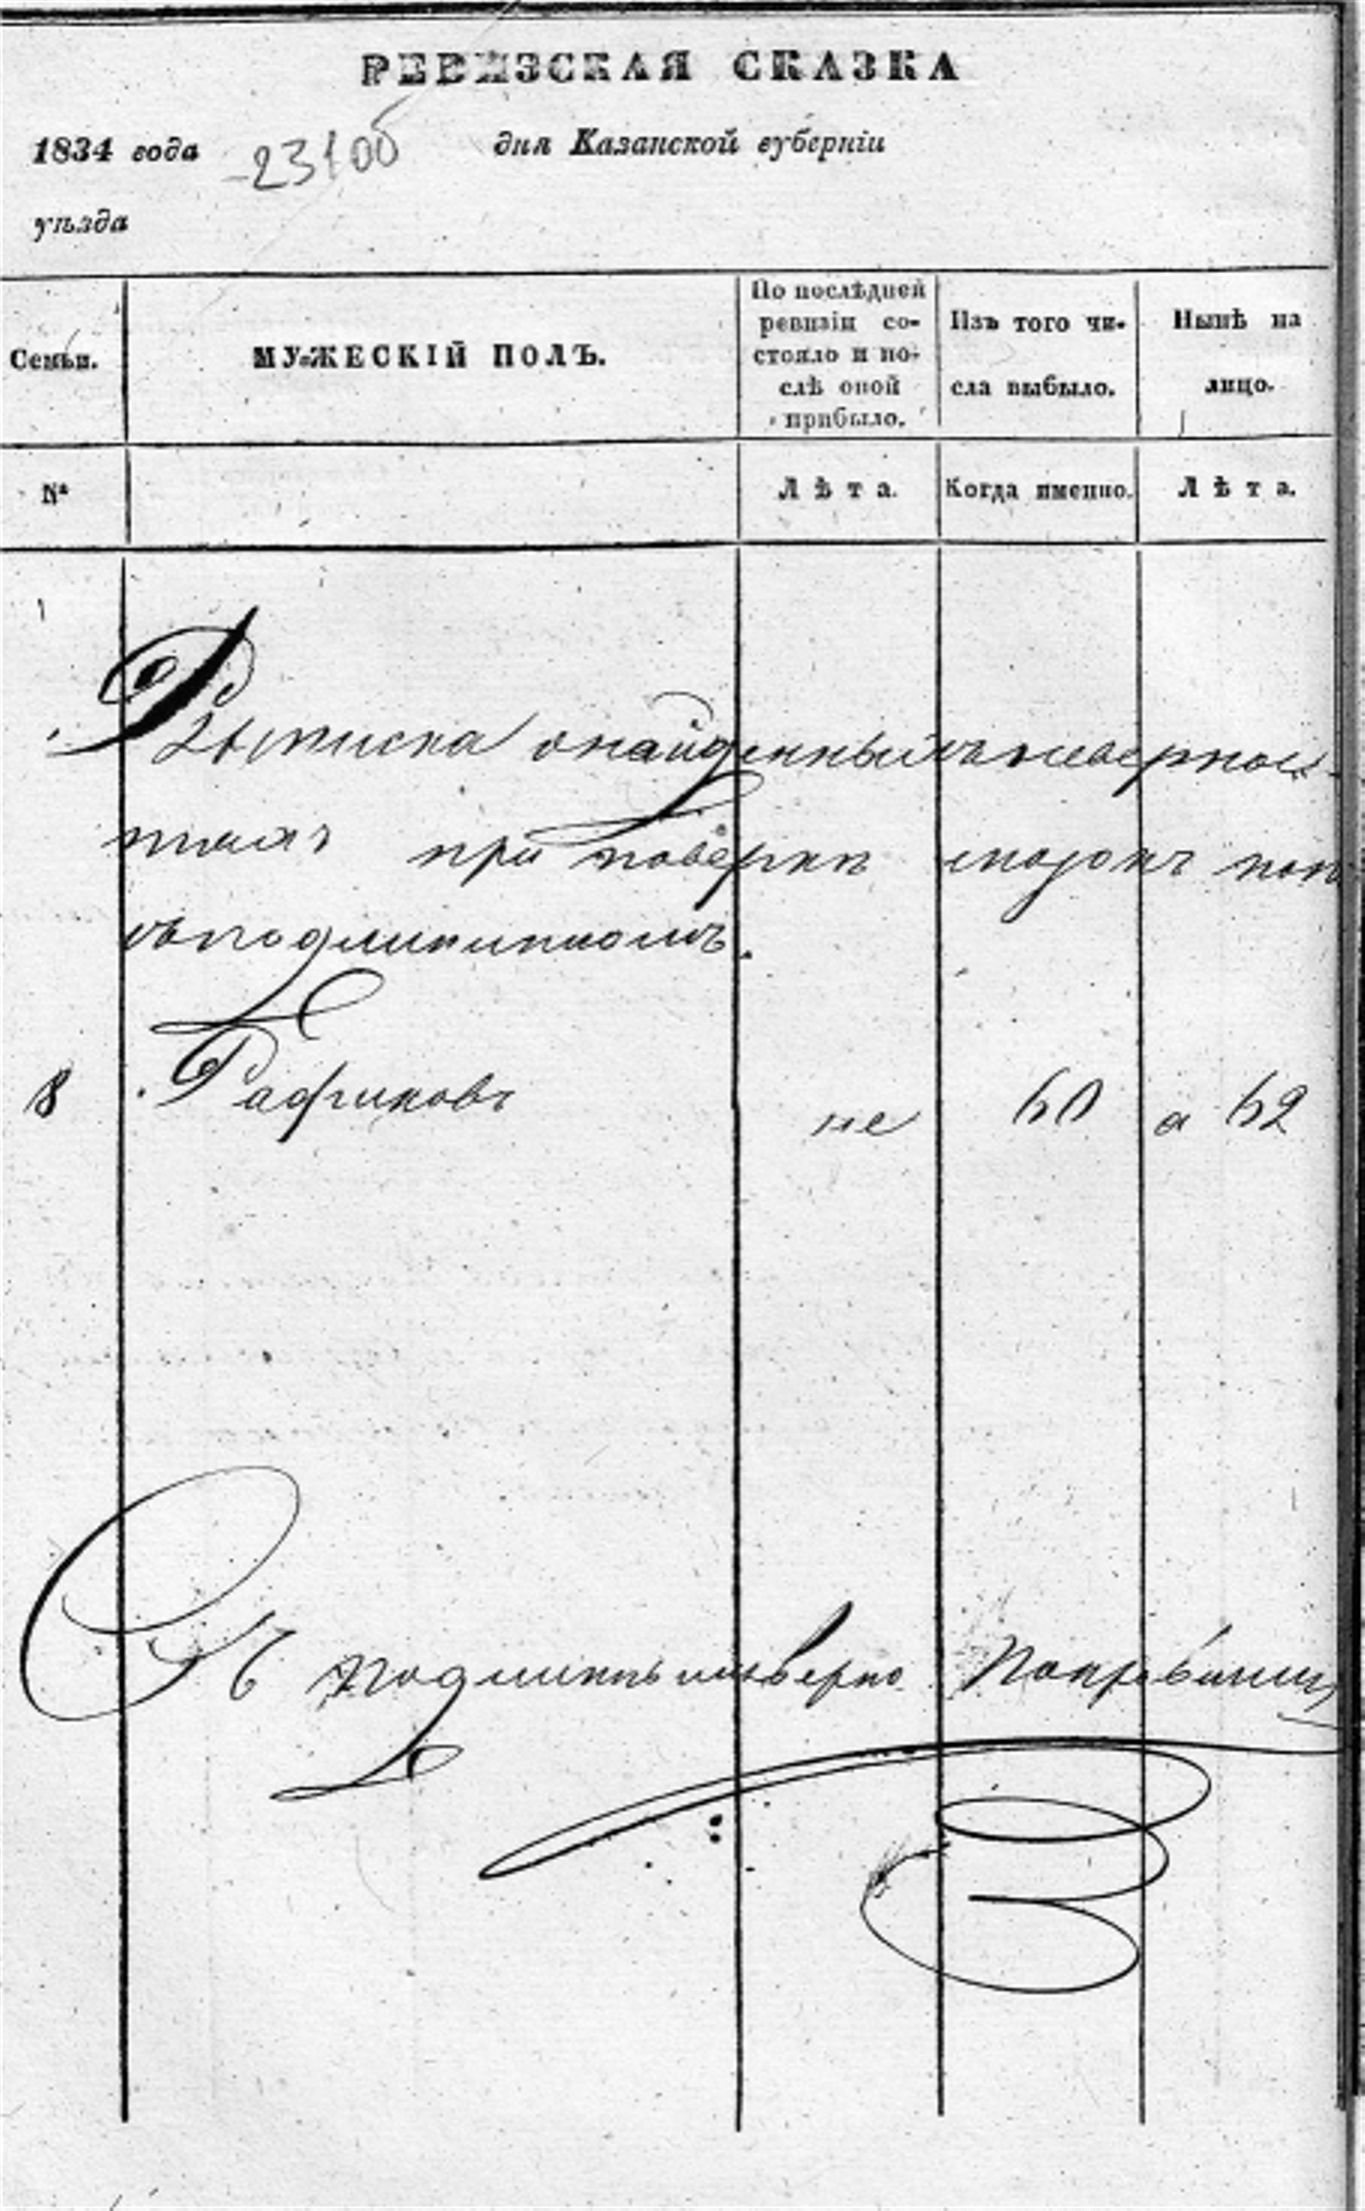 РЕВИЗСКАЯ СКАЗКА
1834 года -231об дня Казанской губерніи
уѣзда
Семьи. МУЖЕСКІЙ ПОЛЪ. По послѣдней ревизіи со- стояло и по- слѣ оной прибыло. Изъ того чи- сла выбыло. Нынѣ на лицо.
№ Лѣта. Когда именно. Лѣта.
Выписка онайденныхъ невернос-
тяхъ при поверке сказокъ
съподлинникомъ.
8 Рафиковъ не 60 а 62
Съ подлиннымъ верно